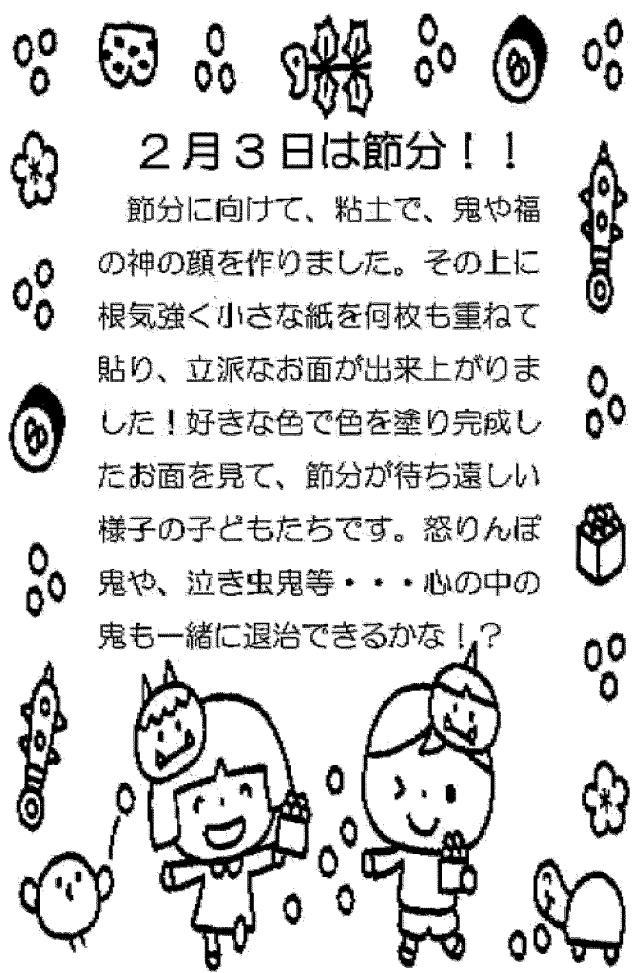 ２月３日は節分！！
節分に向けて、粘土で、鬼や福
の神の顔を作りました。その上に
根気強く小さな紙を何枚も重ねて
貼り、立派なお面が出来上がりま
した！好きな色で色を塗り完成し
たお面を見て、節分が待ち遠しい
様子の子どもたちです。怒りんぼ
鬼や、泣き虫鬼等・・・心の中の
鬼も一緒に退治できるかな！？